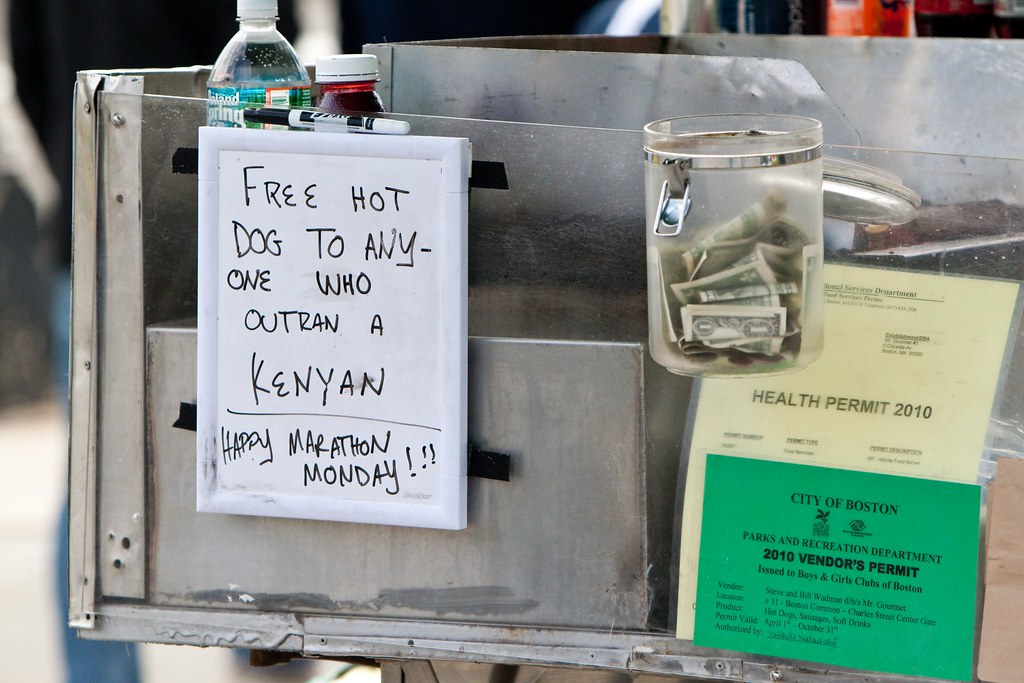 FREE HOT
DOG TO ANY-
ONE WHO
OUTRAN A
KENYAN
HAPPY MARATHON
MONDAY!!!
Services Department
HEALTH PERMIT 2010
PERMIT NUMBER PERMIT TYPE PERMIT DESCRIPTION
Food Services MF - Mobile Food Server
CITY OF BOSTON
PARKS AND RECREATION DEPARTMENT
2010 VENDOR'S PERMIT
Issued to Boys & Girls Clubs of Boston
Vendor: Steve and Bill Wadman d/b/a Mr. Gourmet
Location: # 31 - Boston Common - Charles Street Center Gate
Product: Hot Dogs, Sausages, Soft Drinks
Permit Valid: April 1st - October 31st
Authorized by: